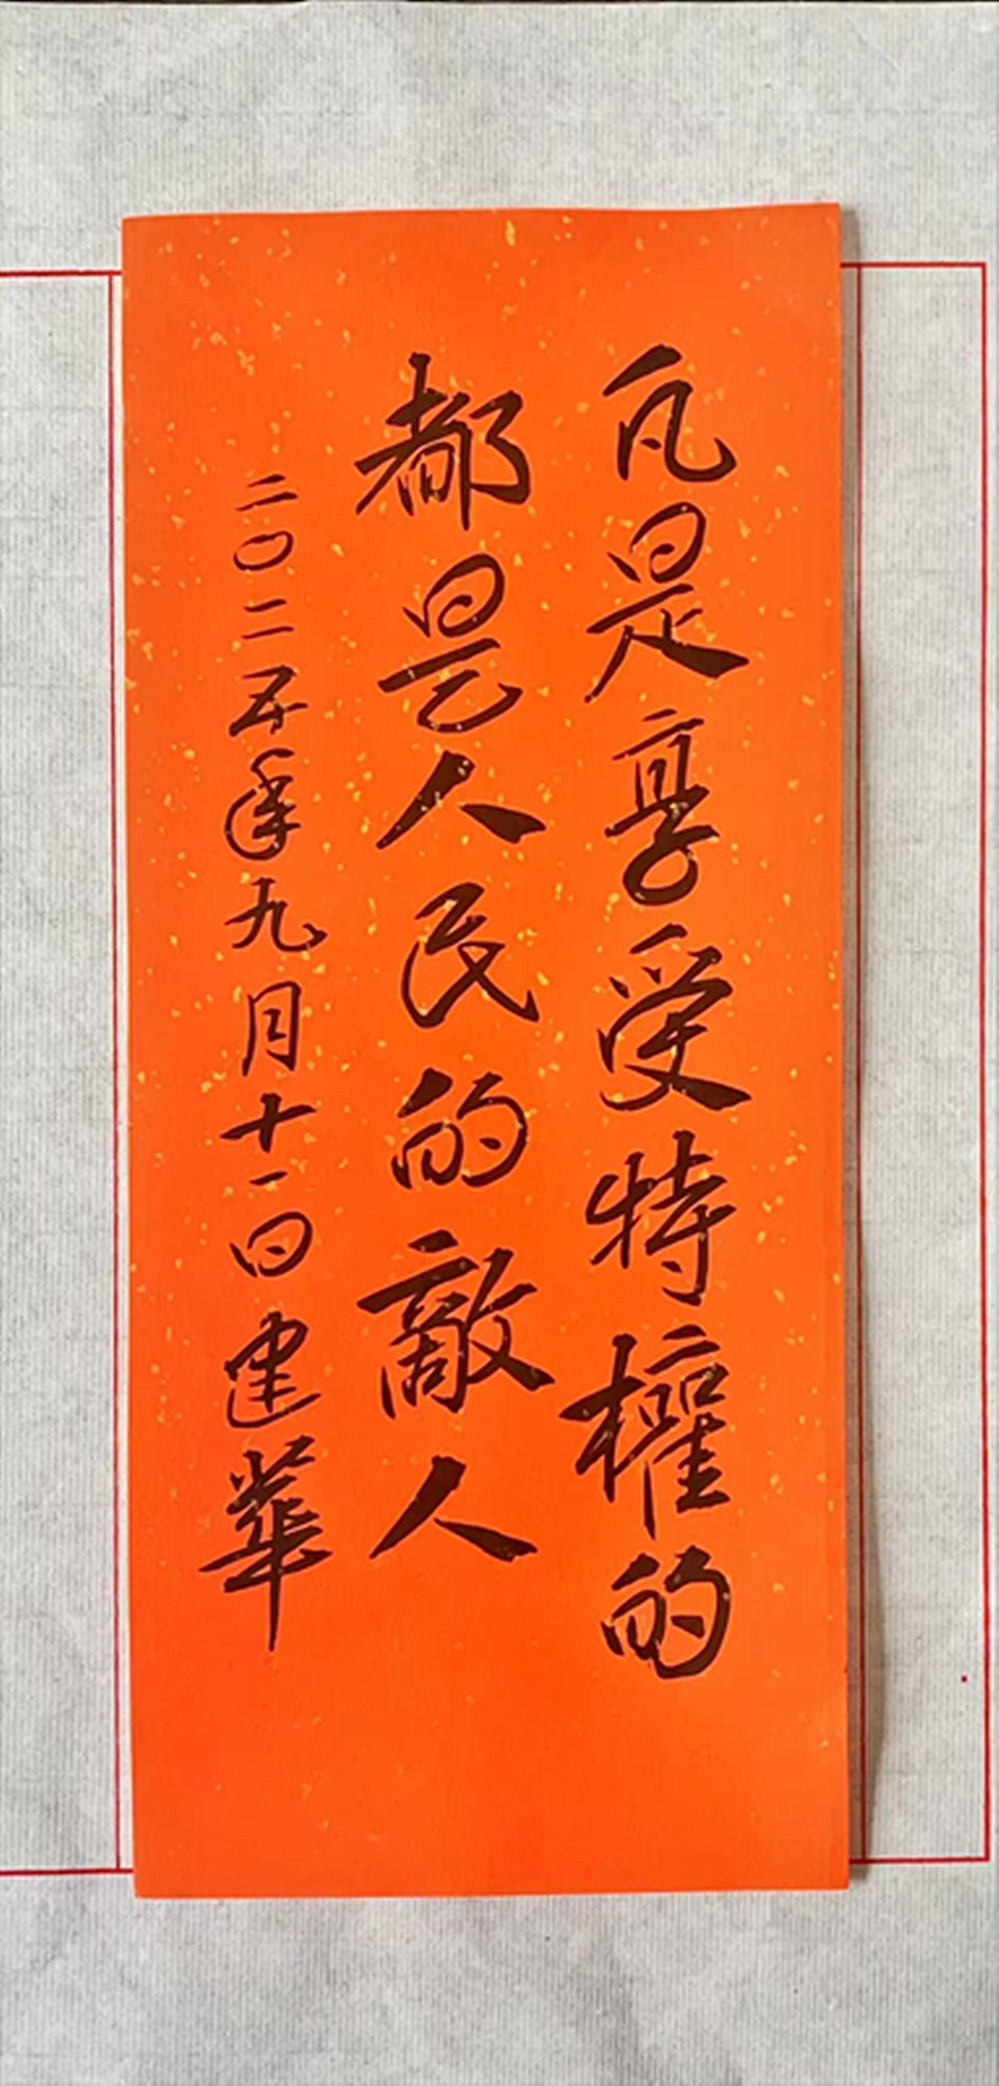 凡是享受特權的
都是人民的敵人
二〇二五年九月十一日建華